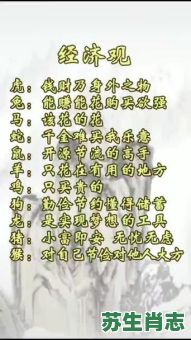 经济观
虎：钱财乃身外之物
兔：能赚能花购买欲强
马：该花的花
蛇：千金难买我乐意
鼠：开源节流的高手
羊：只花在有用的地方
鸡：只买贵的
狗：勤俭节约懂得储蓄
龙：是实现梦想的工具
猪：小富即安 无忧无虑
猴：对自己节俭对他人大方
苏生肖志